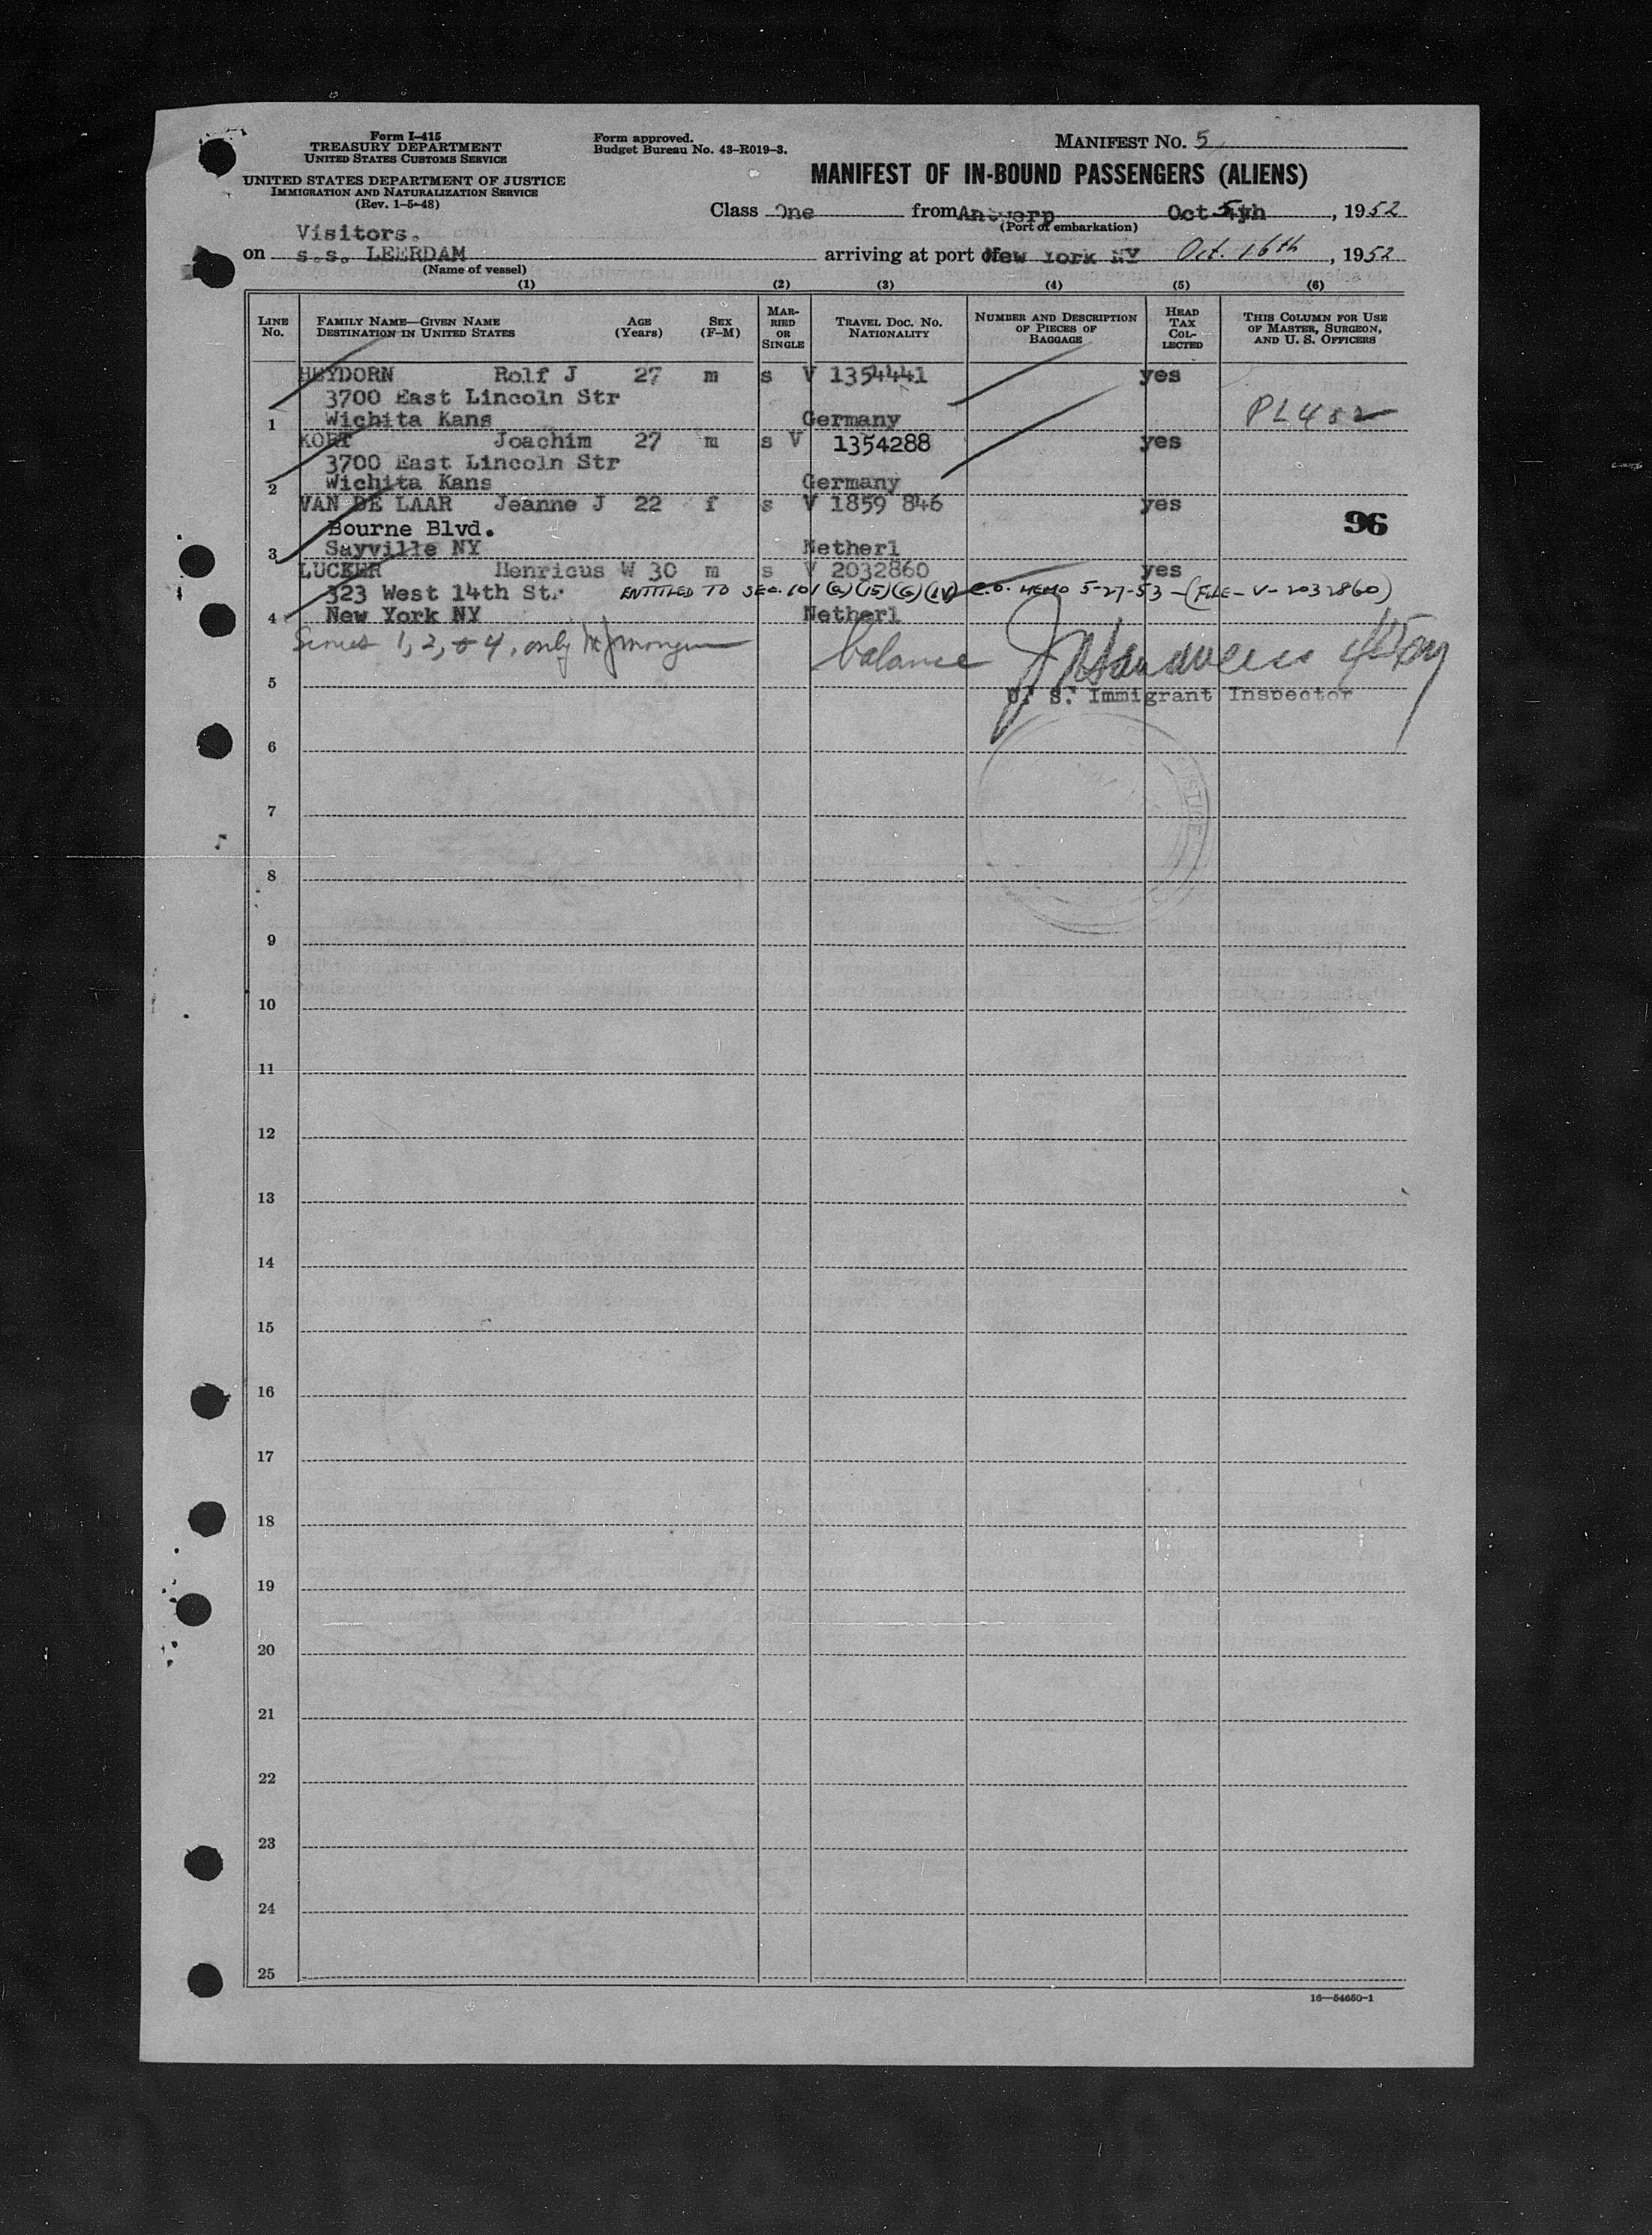 Form I-415
TREASURY DEPARTMENT
UNITED STATES CUSTOMS SERVICE
UNITED STATES DEPARTMENT OF JUSTICE
IMMIGRATION AND NATURALIZATION SERVICE
(Rev. 1-5-48)
Form approved.
Budget Bureau No. 43-R019-3.
MANIFEST NO. 5
MANIFEST OF IN-BOUND PASSENGERS (ALIENS)
Class One from Antwerp Oct 5th, 1952
(Port of embarkation)
Visitors.
on s.s. LEERDAM arriving at port of New York NY Oct. 16th, 1952
(Name of vessel)
(1) (2) (3) (4) (5) (6)
LINE No. FAMILY NAME—GIVEN NAME DESTINATION IN UNITED STATES AGE (Years) SEX (F-M) MARRIED OR SINGLE TRAVEL DOC. NO. NATIONALITY NUMBER AND DESCRIPTION OF PIECES OF BAGGAGE HEAD TAX COLLECTED THIS COLUMN FOR USE OF MASTER, SURGEON, AND U. S. OFFICERS
HEYDORN Rolf J 27 m s V 1354441 yes
3700 East Lincoln Str
1 Wichita Kans Germany PL402
KORT Joachim 27 m s V 1354288 yes
3700 East Lincoln Str
2 Wichita Kans Germany
VAN DE LAAR Jeanne J 22 f s V 1859 846 yes
Bourne Blvd. 96
3 Sayville NY Netherl
LUCKER Henricus W 30 m s V 2032860 yes
323 West 14th Str ENTITLED TO SEC. 101 (a) (15) (G) (IV) C.O. MEMO 5-27-53 - (FILE - V- 2032860)
4 New York NY Netherl
1, 2, + 4, only balance
5
U. S. Immigrant Inspector
6
7
JUSTICE
8
9
10
11
12
13
14
15
16
17
18
19
20
21
22
23
24
25
16—54650-1